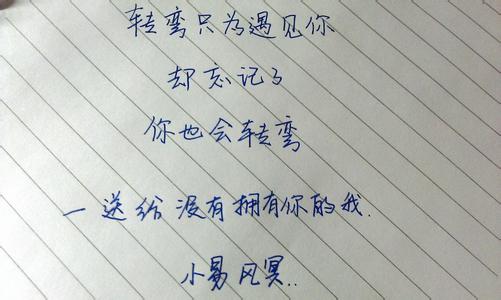 转弯只为遇见你
却忘记了
你也会转弯
一送给没有拥有你的我.
小易风冥..